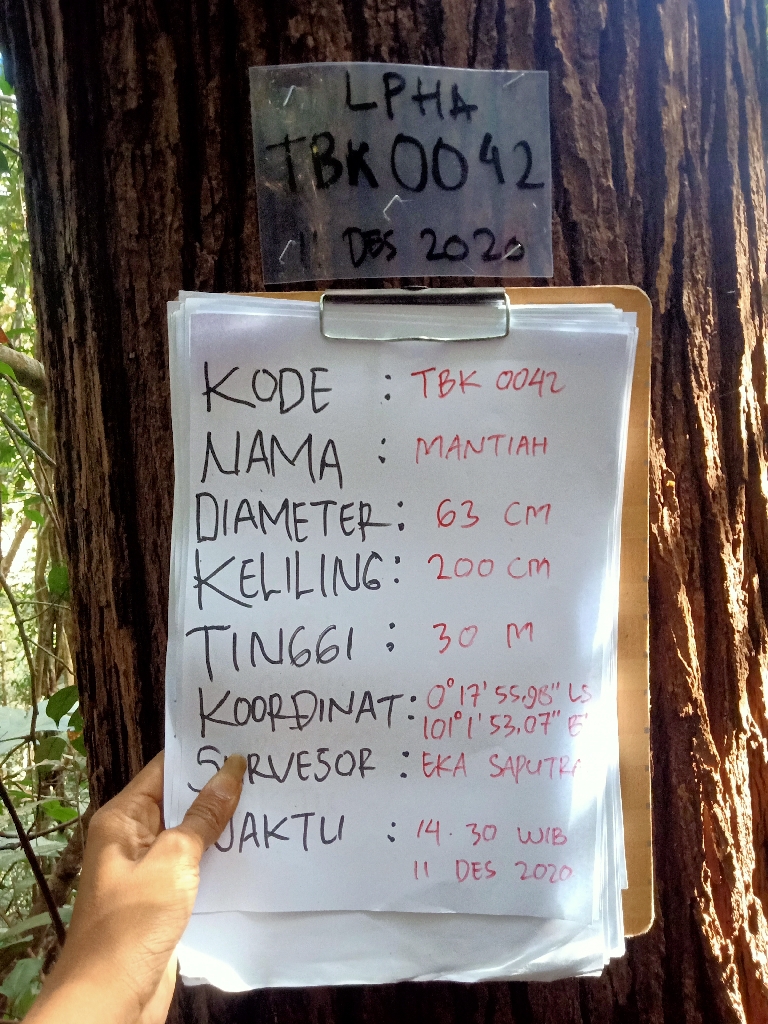 LPHA
TBK 0042
11 DES 2020
KODE : TBK 0042
NAMA : MANTIAH
DIAMETER : 63 CM
KELILING : 200 CM
TINGGI : 30 M
KOORDINAT : 0°17'55,98" LS
101°1'53.07" E
SURVESOR : EKA SAPUTRA
WAKTU : 14.30 WIB
11 DES 2020